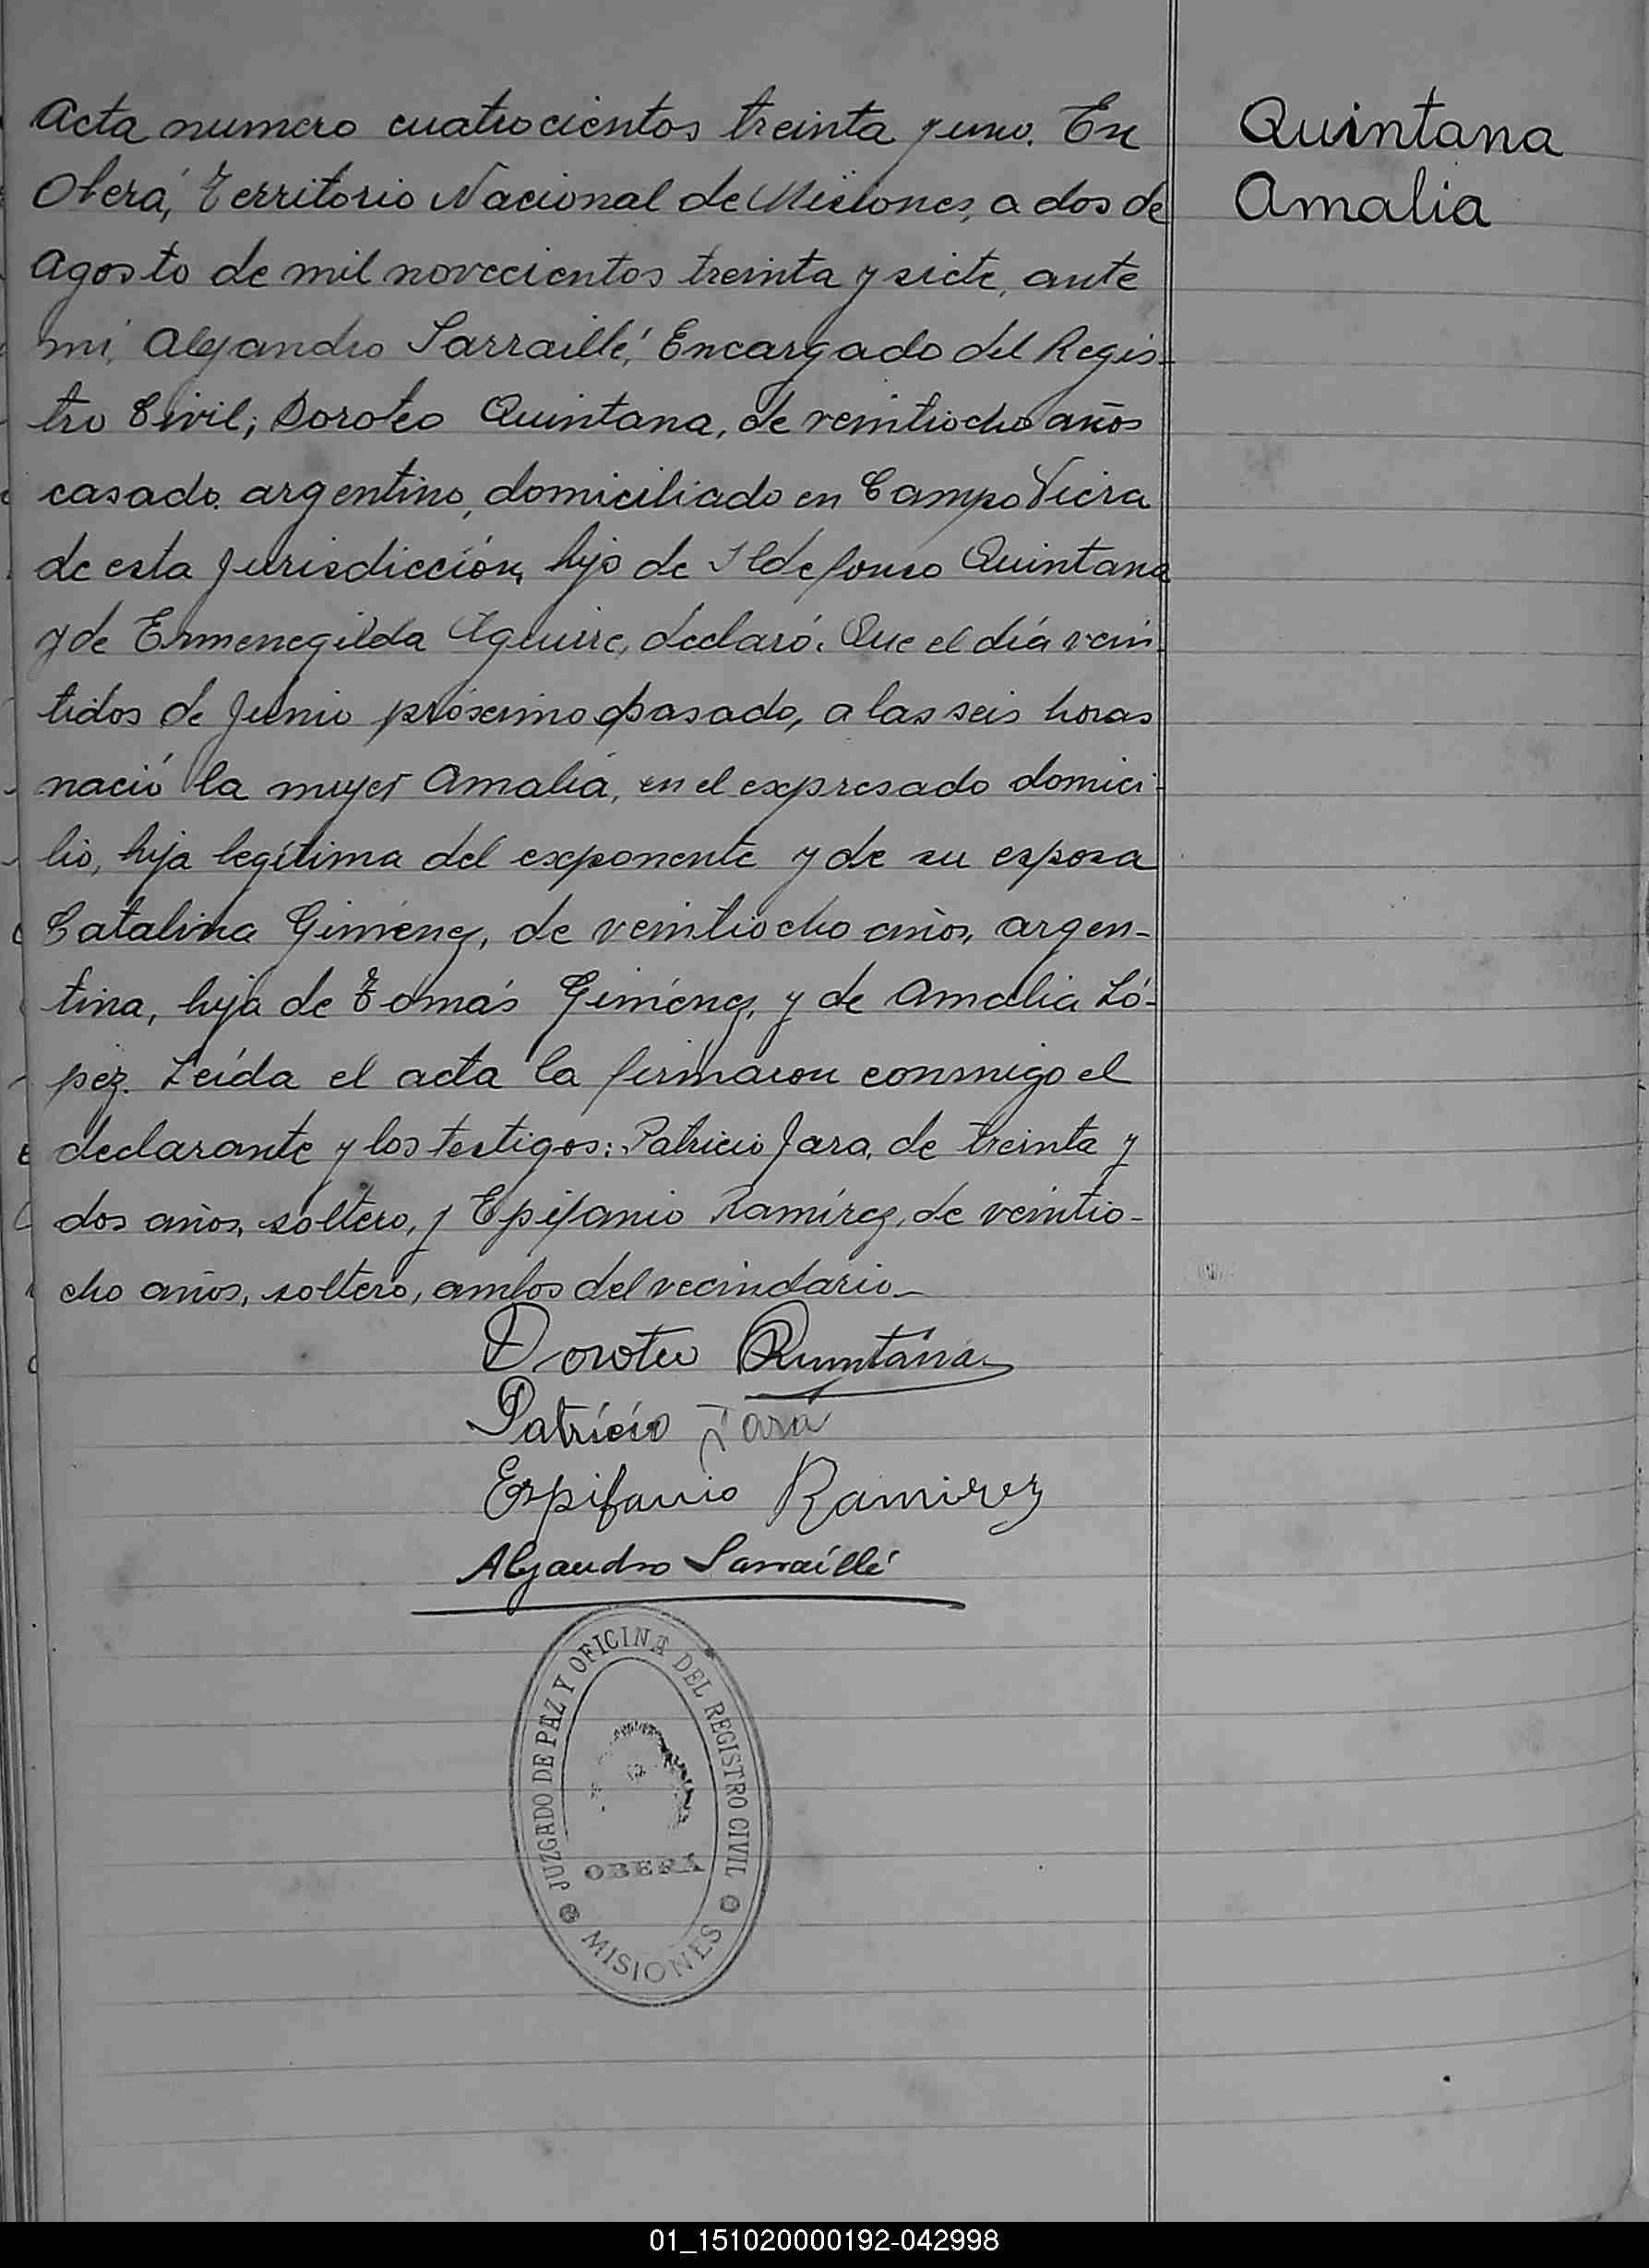 Acta numero cuatrocientos treinta y uno. En
Oberá, Territorio Nacional de Misiones, a dos de
Agosto de mil novecientos treinta y siete, ante
mi, Alejandro Sarraillé, Encargado del Regis-
tro Civil; Doroteo Quintana, de veintiocho años
casado, argentino, domiciliado en Campo Viera
de esta Jurisdicción, hijo de Ildefonso Quintana
y de Ermenegilda Aguirre, declaró: Que el día vein
tidos de Junio próximo pasado, a las seis horas
nació la mujer Amalia, en el expresado domici-
lio, hija legítima del exponente y de su esposa
Catalina Giménez, de veintiocho años, argen-
tina, hija de Tomás Giménez, y de Amalia Ló-
pez. Leída el acta la firmaron conmigo el
declarante y los testigos: Patricio Jara, de treinta y
dos años, soltero, y Epifanio Ramírez, de veintio-
cho años, soltero, ambos del vecindario_
Doroteo Quintána
Patrício Jara
Espifanio Ramirez
Alejandro Sarraíllé
JUZGADO DE PAZ Y OFICINA DEL REGISTRO CIVIL
OBERÁ
MISIONES
Quintana
Amalia
01_151020000192-042998